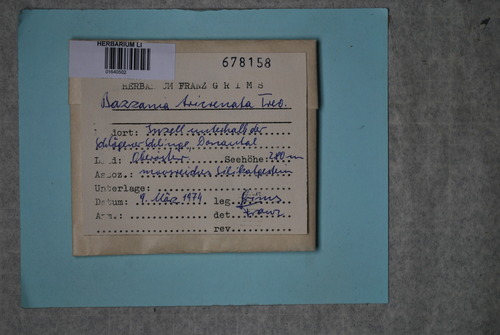 HERBARIUM LI
01640502
678158
HERBARIUM FRANZ GRIMS
Bazzania tricrenata Trev.
dort: Inzell unterhalb der
Schlögener Schlinge, Donautal
Land: Oberöster. Seehöhe: 280 m
Assoz.:
Unterlage:
Datum: 9. März 1974 leg. Grims
Anm.: det. Franz
rev.